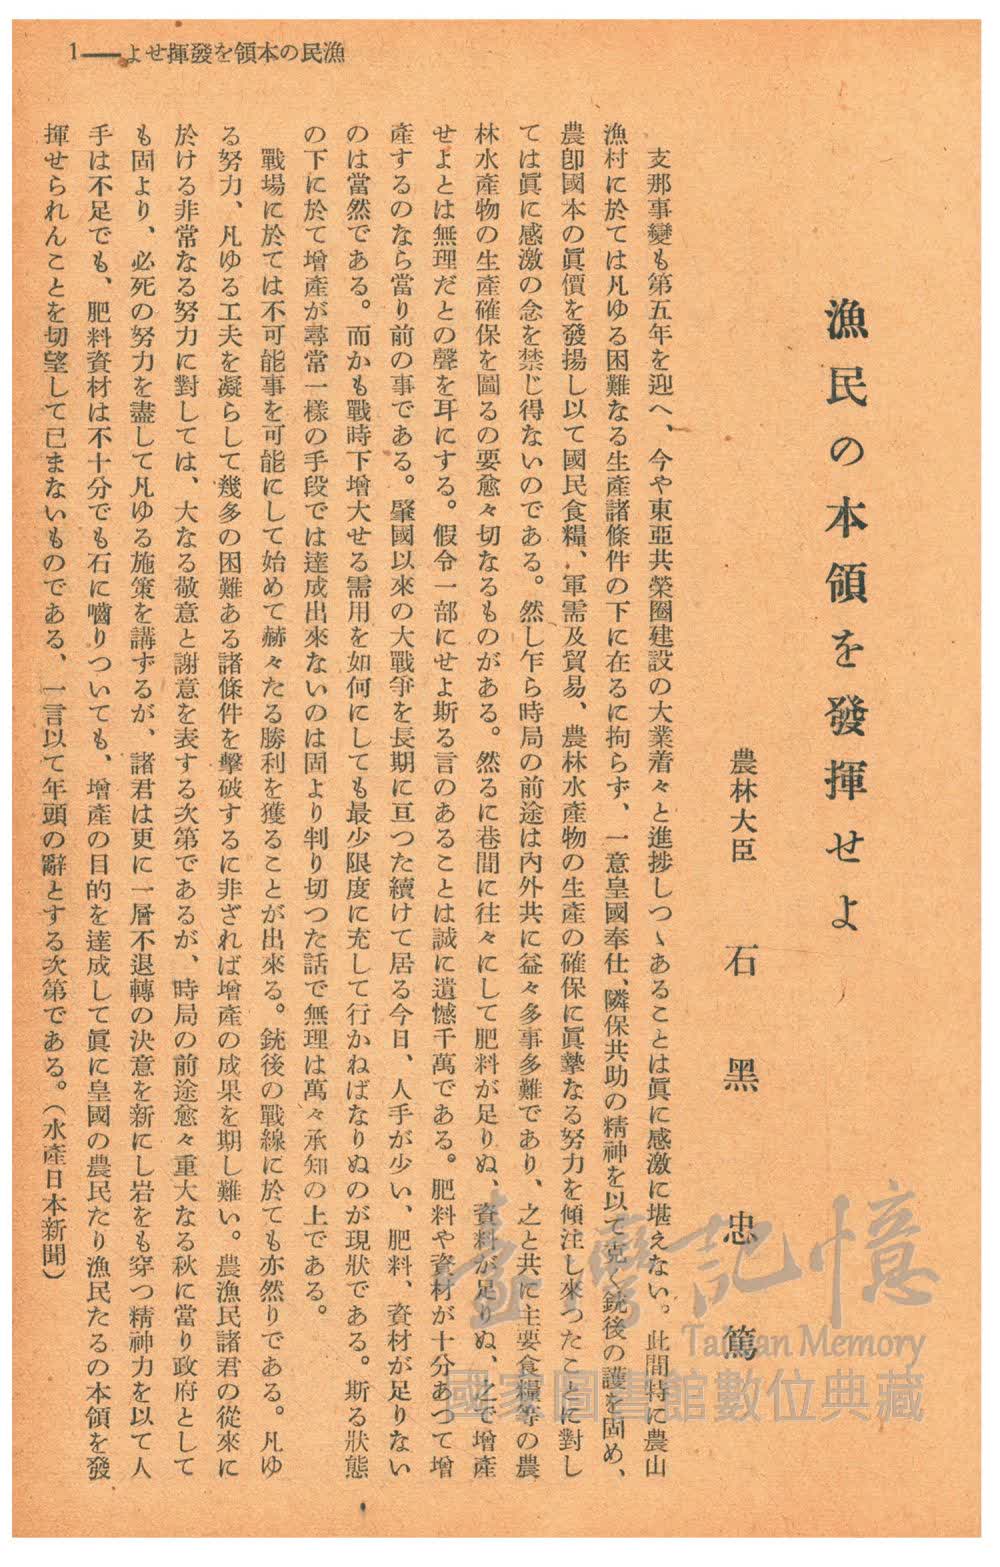 漁民の本領を發揮せよ——1
漁民の本領を發揮せよ
農林大臣 石黑忠篤
支那事變も第五年を迎へ、今や東亞共榮圈建設の大業着々と進捗しつゝあることは眞に感激に堪えない。此間特に農山
漁村に於ては凡ゆる困難なる生產諸條件の下に在るに拘らず、一意皇國奉仕、隣保共助の精神を以て克く銃後の護を固め、
農卽國本の眞價を發揚し以て國民食糧、軍需及貿易、農林水產物の生產の確保に眞摯なる努力を傾注し來つたことに對し
ては眞に感激の念を禁じ得ないのである。然し乍ら時局の前途は內外共に益々多事多難であり、之と共に主要食糧等の農
林水產物の生產確保を圖るの要愈々切なるものがある。然るに巷間に往々にして肥料が足りぬ、資料が足りぬ、之で增產
せよとは無理だとの聲を耳にする。假令一部にせよ斯る言のあることは誠に遺憾千萬である。肥料や資材が十分あつて增
產するのなら當り前の事である。肇國以來の大戰爭を長期に亘つた續けて居る今日、人手が少い、肥料、資材が足りない
のは當然である。而かも戰時下增大せる需用を如何にしても最少限度に充して行かねばなりぬのが現狀である。斯る狀態
の下に於て增產が尋常一樣の手段では達成出來ないのは固より判り切つた話で無理は萬々承知の上である。
戰場に於ては不可能事を可能にして始めて赫々たる勝利を獲ることが出來る。銃後の戰線に於ても亦然りである。凡ゆ
る努力、凡ゆる工夫を凝らして幾多の困難ある諸條件を擊破するに非ざれば增產の成果を期し難い。農漁民諸君の從來に
於ける非常なる努力に對しては、大なる敬意と謝意を表する次第であるが、時局の前途愈々重大なる秋に當り政府として
も固より、必死の努力を盡して凡ゆる施策を講ずるが、諸君は更に一層不退轉の決意を新にし岩をも穿つ精神力を以て人
手は不足でも、肥料資材は不十分でも石に嚙りついても、增產の目的を達成して眞に皇國の農民たり漁民たるの本領を發
揮せられんことを切望して已まないものである、一言以て年頭の辭とする次第である。（水產日本新聞）
臺灣記憶
Taiwan Memory
國家圖書館數位典藏